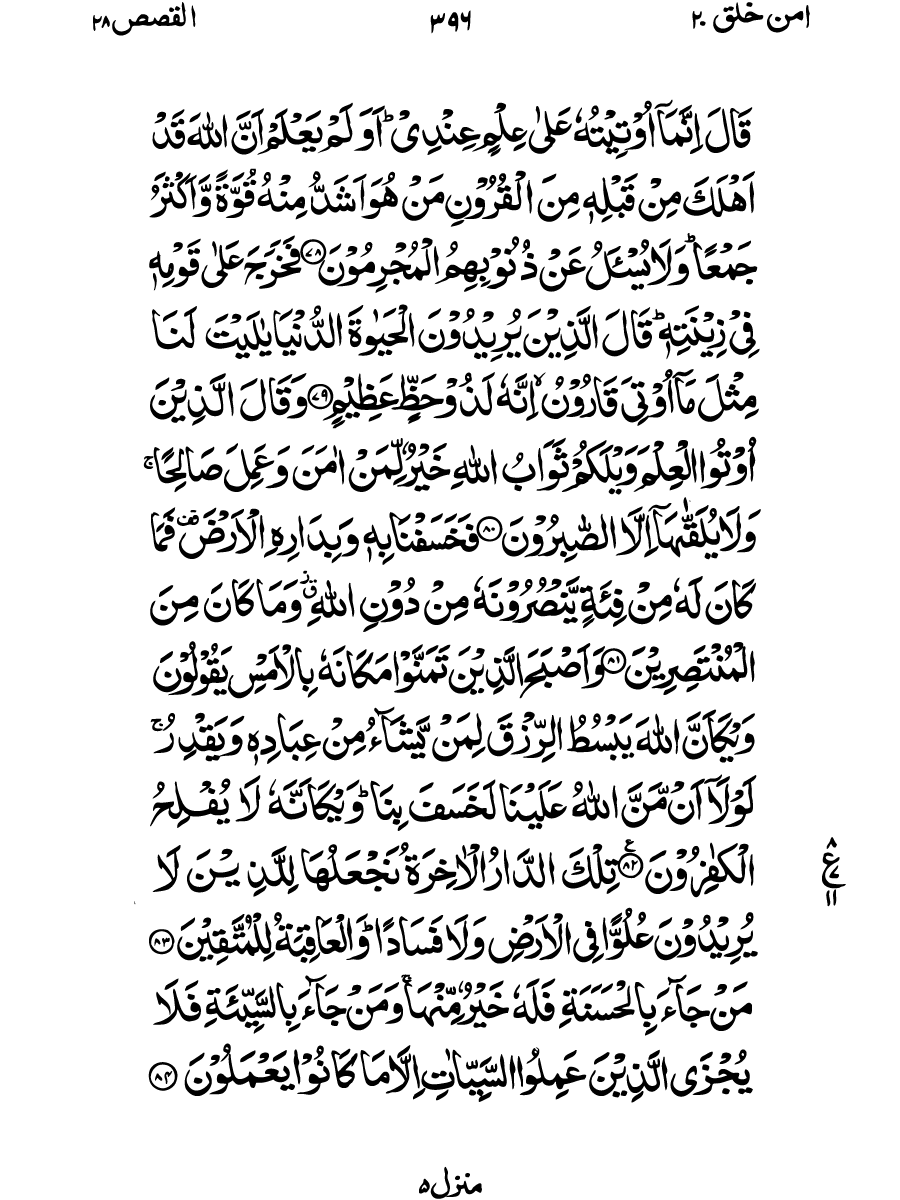 امن خلق ۲۰ ۳۹۶ القصص ۲۸
قَالَ اِنَّمَاۤ اُوْتِيْتُهٗ عَلٰى عِلْمٍ عِنْدِىْ ؕ اَوَ لَمْ يَعْلَمْ اَنَّ اللّٰهَ قَدْ
اَهْلَكَ مِنْ قَبْلِهٖ مِنَ الْقُرُوْنِ مَنْ هُوَ اَشَدُّ مِنْهُ قُوَّةً وَّاَكْثَرُ
جَمْعًا ؕ وَلَا يُسْـَٔلُ عَنْ ذُنُوْبِهِمُ الْمُجْرِمُوْنَ ﴿۷۸﴾ فَخَرَجَ عَلٰى قَوْمِهٖ
فِىْ زِيْنَتِهٖ ؕ قَالَ الَّذِيْنَ يُرِيْدُوْنَ الْحَيٰوةَ الدُّنْيَا يٰلَيْتَ لَنَا
مِثْلَ مَاۤ اُوْتِىَ قَارُوْنُ ۙ اِنَّهٗ لَذُوْ حَظٍّ عَظِيْمٍ ﴿۷۹﴾ وَقَالَ الَّذِيْنَ
اُوْتُوا الْعِلْمَ وَيْلَكُمْ ثَوَابُ اللّٰهِ خَيْرٌ لِّمَنْ اٰمَنَ وَعَمِلَ صَالِحًا ۚ
وَلَا يُلَقّٰىهَاۤ اِلَّا الصّٰبِرُوْنَ ﴿۸۰﴾ فَخَسَفْنَا بِهٖ وَبِدَارِهِ الْاَرْضَ ۟ فَمَا
كَانَ لَهٗ مِنْ فِئَةٍ يَّنْصُرُوْنَهٗ مِنْ دُوْنِ اللّٰهِ ۗ وَمَا كَانَ مِنَ
الْمُنْتَصِرِيْنَ ﴿۸۱﴾ وَاَصْبَحَ الَّذِيْنَ تَمَنَّوْا مَكَانَهٗ بِالْاَمْسِ يَقُوْلُوْنَ
وَيْكَاَنَّ اللّٰهَ يَبْسُطُ الرِّزْقَ لِمَنْ يَّشَآءُ مِنْ عِبَادِهٖ وَيَقْدِرُ ۚ
لَوْلَاۤ اَنْ مَّنَّ اللّٰهُ عَلَيْنَا لَخَسَفَ بِنَا ؕ وَيْكَاَنَّهٗ لَا يُفْلِحُ
الْكٰفِرُوْنَ ﴿۸۲﴾ تِلْكَ الدَّارُ الْاٰخِرَةُ نَجْعَلُهَا لِلَّذِيْنَ لَا
۸ ع ۷ ۱۱
يُرِيْدُوْنَ عُلُوًّا فِى الْاَرْضِ وَلَا فَسَادًا ؕ وَالْعَاقِبَةُ لِلْمُتَّقِيْنَ ﴿۸۳﴾
مَنْ جَآءَ بِالْحَسَنَةِ فَلَهٗ خَيْرٌ مِّنْهَا ۚ وَمَنْ جَآءَ بِالسَّيِّئَةِ فَلَا
يُجْزَى الَّذِيْنَ عَمِلُوا السَّيِّاٰتِ اِلَّا مَا كَانُوْا يَعْمَلُوْنَ ﴿۸۴﴾
منزل ۵